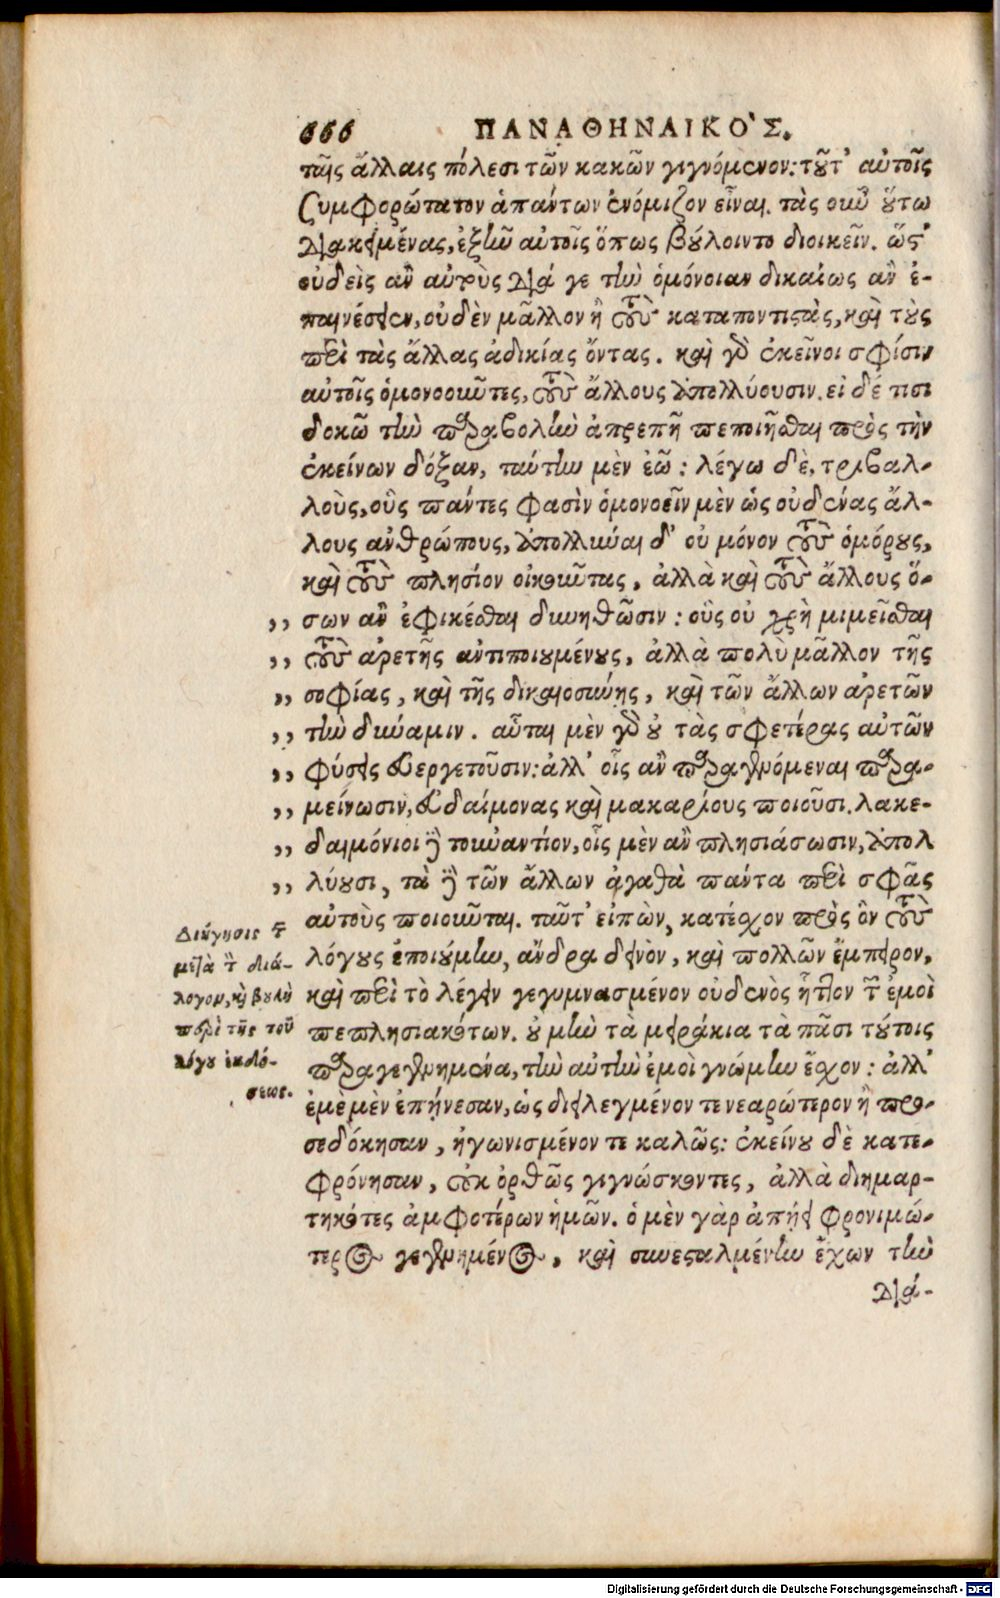 666 ΠΑΝΑΘΗΝΑΙΚΟ'Σ.
ταῖς ἄλλαις πόλεσι τῶν κακῶν γιγνόμενον: τοῦτ' αὐτοῖς
συμφορώτατον ἁπάντων ἐνόμιζον εἶναι. τὰς οὖν οὕτω
διακειμένας, ἐξῆν αὐτοῖς ὅπως βούλοιντο διοικεῖν. ὥστ'
οὐδεὶς ἂν αὐτοὺς διά γε τὴν ὁμόνοιαν δικαίως ἂν ἐ-
παινέσειεν, οὐδὲν μᾶλλον ἢ τοὺς καταποντιστὰς, καὶ τοὺς
περὶ τὰς ἄλλας ἀδικίας ὄντας. καὶ γὰρ ἐκεῖνοι σφίσιν
αὐτοῖς ὁμονοοῦντες, τοὺς ἄλλους ἀπολλύουσιν. εἰ δέ τισι
δοκῶ τὴν παραβολὴν ἀπρεπῆ πεποιῆσθαι πρὸς τὴν
ἐκείνων δόξαν, ταύτην μὲν ἐῶ: λέγω δὲ, τριβαλ-
λοὺς, οὓς πάντες φασὶν ὁμονοεῖν μὲν ὡς οὐδένας ἄλ-
λους ἀνθρώπους, ἀπολλύναι δ' οὐ μόνον τοὺς ὁμόρους,
καὶ τοὺς πλησίον οἰκοῦντας, ἀλλὰ καὶ τοὺς ἄλλους ὅ-
,, σων ἂν ἐφικέσθαι δυνηθῶσιν: οὓς οὐ χρὴ μιμεῖσθαι
,, τοὺς ἀρετῆς ἀντιποιουμένους, ἀλλὰ πολὺ μᾶλλον τῆς
,, σοφίας, καὶ τῆς δικαιοσύνης, καὶ τῶν ἄλλων ἀρετῶν
,, τὴν δύναμιν. αὗται μὲν γὰρ οὐ τὰς σφετέρας αὐτῶν
,, φύσεις εὐεργετοῦσιν: ἀλλ' οἷς ἂν παραγενόμεναι παρα-
,, μείνωσιν, εὐδαίμονας καὶ μακαρίους ποιοῦσι. λακε-
,, δαιμόνιοι δὲ τοὐναντίον, οἷς μὲν ἂν πλησιάσωσιν, ἀπολ
,, λύουσι, τὰ δὲ τῶν ἄλλων ἀγαθὰ πάντα περὶ σφᾶς
αὐτοὺς ποιοῦνται. ταῦτ' εἰπὼν, κατέσχον πρὸς ὃν τοὺς
λόγους ἐποιούμην, ἄνδρα δεινὸν, καὶ πολλῶν ἔμπειρον,
καὶ περὶ τὸ λέγειν γεγυμνασμένον οὐδενὸς ἧττον τῶν ἐμοὶ
πεπλησιακότων. οὐ μὴν τὰ μειράκια τὰ πᾶσι τούτοις
παραγεγενημένα, τὴν αὐτὴν ἐμοὶ γνώμην ἔσχον: ἀλλ'
ἐμὲ μὲν ἐπῄνεσαν, ὡς διειλεγμένον τε νεαρώτερον ἢ προ-
σεδόκησαν, ἠγωνισμένον τε καλῶς: ἐκείνου δὲ κατε-
φρόνησαν, οὐκ ὀρθῶς γιγνώσκοντες, ἀλλὰ διημαρ-
τηκότες ἀμφοτέρων ἡμῶν. ὁ μὲν γὰρ ἀπῄει φρονιμώ-
τερος γεγενημένος, καὶ συνεσταλμένην ἔχων τὴν
διά-
Διήγησις τῶν
μετὰ τὸν διά-
λογον, καὶ βουλὴ
περὶ τῆς τοῦ
λόγου ἐκδό-
σεως.
Digitalisierung gefördert durch die Deutsche Forschungsgemeinschaft - DFG